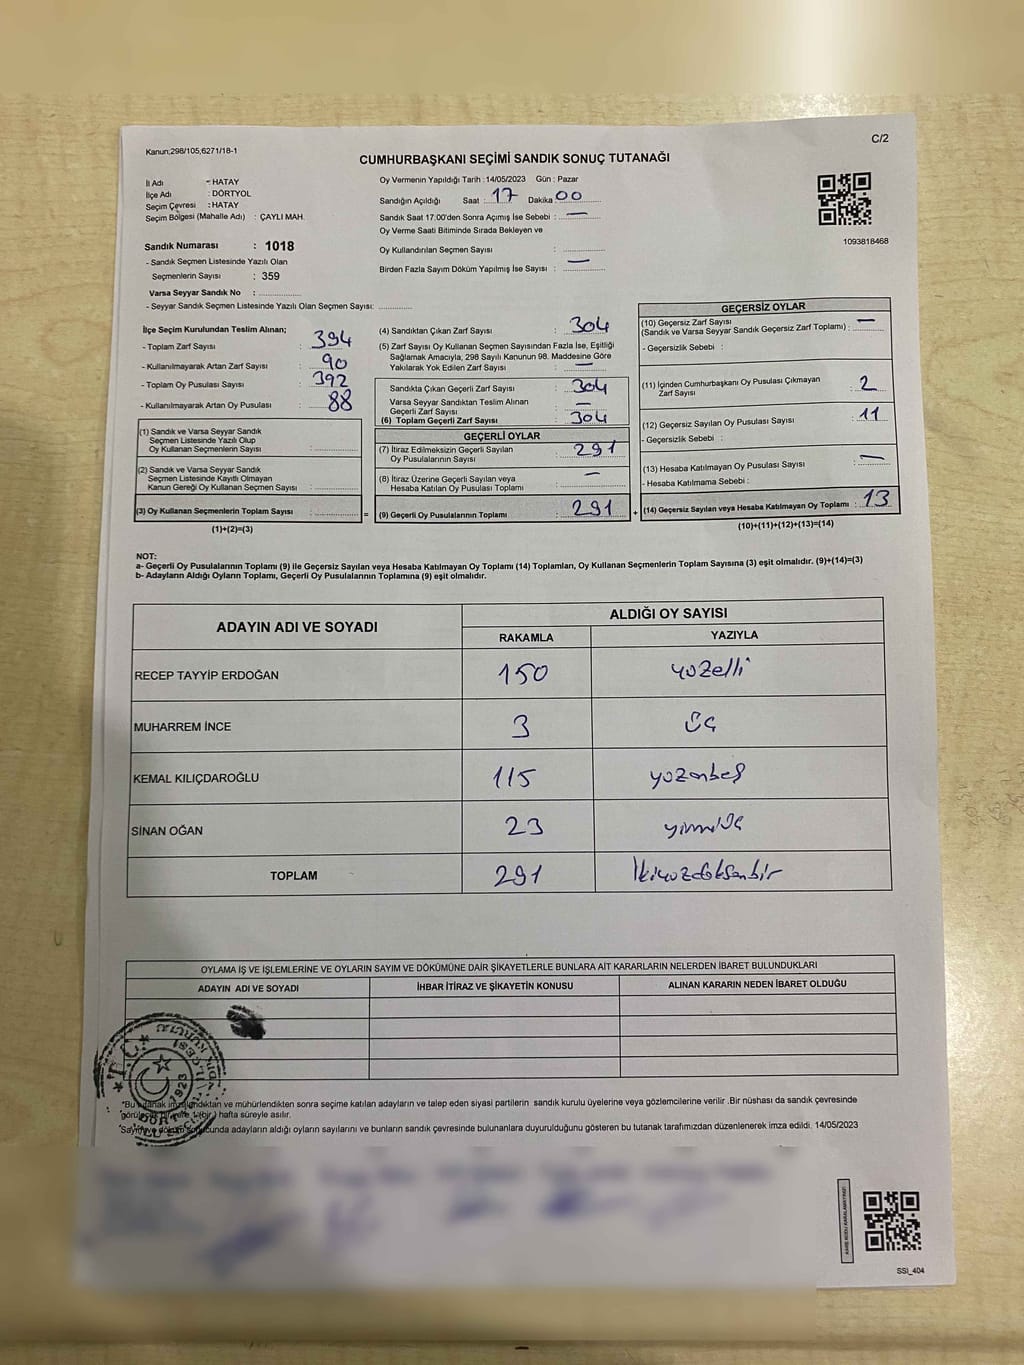 C/2
Kanun:298/105,6271/18-1
CUMHURBAŞKANI SEÇİMİ SANDIK SONUÇ TUTANAĞI
İl Adı : HATAY
İlçe Adı : DÖRTYOL
Seçim Çevresi : HATAY
Seçim Bölgesi (Mahalle Adı) : ÇAYLI MAH.
Sandık Numarası : 1018
- Sandık Seçmen Listesinde Yazılı Olan
Seçmenlerin Sayısı : 359
Varsa Seyyar Sandık No :
- Seyyar Sandık Seçmen Listesinde Yazılı Olan Seçmen Sayısı:
Oy Vermenin Yapıldığı Tarih : 14/05/2023 Gün : Pazar
Sandığın Açıldığı Saat : 17 Dakika : 00
Sandık Saat 17:00'den Sonra Açımış İse Sebebi : —
Oy Verme Saati Bitiminde Sırada Bekleyen ve
Oy Kullandırılan Seçmen Sayısı :
Birden Fazla Sayım Döküm Yapılmış İse Sayısı : —
1093818468
İlçe Seçim Kurulundan Teslim Alınan;
- Toplam Zarf Sayısı : 394
- Kullanılmayarak Artan Zarf Sayısı : 90
- Toplam Oy Pusulası Sayısı : 392
- Kullanılmayarak Artan Oy Pusulası : 88
(1) Sandık ve Varsa Seyyar Sandık
Seçmen Listesinde Yazılı Olup
Oy Kullanan Seçmenlerin Sayısı :
(2) Sandık ve Varsa Seyyar Sandık
Seçmen Listesinde Kayıtlı Olmayan
Kanun Gereği Oy Kullanan Seçmen Sayısı :
(3) Oy Kullanan Seçmenlerin Toplam Sayısı : =
(1)+(2)=(3)
(4) Sandıktan Çıkan Zarf Sayısı : 304
(5) Zarf Sayısı Oy Kullanan Seçmen Sayısından Fazla İse, Eşitliği
Sağlamak Amacıyla, 298 Sayılı Kanunun 98. Maddesine Göre
Yakılarak Yok Edilen Zarf Sayısı : —
Sandıkta Çıkan Geçerli Zarf Sayısı : 304
Varsa Seyyar Sandıktan Teslim Alınan
Geçerli Zarf Sayısı : —
(6) Toplam Geçerli Zarf Sayısı : 304
GEÇERLİ OYLAR
(7) İtiraz Edilmeksizin Geçerli Sayılan
Oy Pusulalarının Sayısı : 291
(8) İtiraz Üzerine Geçerli Sayılan veya
Hesaba Katılan Oy Pusulası Toplamı : —
(9) Geçerli Oy Pusulalarının Toplamı : 291 +
GEÇERSİZ OYLAR
(10) Geçersiz Zarf Sayısı
(Sandık ve Varsa Seyyar Sandık Geçersiz Zarf Toplamı) : —
- Geçersizlik Sebebi :
(11) İçinden Cumhurbaşkanı Oy Pusulası Çıkmayan
Zarf Sayısı : 2
(12) Geçersiz Sayılan Oy Pusulası Sayısı : 11
- Geçersizlik Sebebi :
(13) Hesaba Katılmayan Oy Pusulası Sayısı : —
- Hesaba Katılmama Sebebi :
(14) Geçersiz Sayılan veya Hesaba Katılmayan Oy Toplamı : 13
(10)+(11)+(12)+(13)=(14)
NOT:
a- Geçerli Oy Pusulalarının Toplamı (9) ile Geçersiz Sayılan veya Hesaba Katılmayan Oy Toplamı (14) Toplamları, Oy Kullanan Seçmenlerin Toplam Sayısına (3) eşit olmalıdır. (9)+(14)=(3)
b- Adayların Aldığı Oyların Toplamı, Geçerli Oy Pusulalarının Toplamına (9) eşit olmalıdır.
ADAYIN ADI VE SOYADI ALDIĞI OY SAYISI
RAKAMLA YAZIYLA
RECEP TAYYİP ERDOĞAN 150 yüzelli
MUHARREM İNCE 3 üç
KEMAL KILIÇDAROĞLU 115 yüzonbeş
SİNAN OĞAN 23 yirmiüç
TOPLAM 291 İkiyüzdoksanbir
OYLAMA İŞ VE İŞLEMLERİNE VE OYLARIN SAYIM VE DÖKÜMÜNE DAİR ŞİKAYETLERLE BUNLARA AİT KARARLARIN NELERDEN İBARET BULUNDUKLARI
ADAYIN ADI VE SOYADI İHBAR İTİRAZ VE ŞİKAYETİN KONUSU ALINAN KARARIN NEDEN İBARET OLDUĞU
T.C.
1923
*Bu tutanak imzalandıktan ve mühürlendikten sonra seçime katılan adayların ve talep eden siyasi partilerin sandık kurulu üyelerine veya gözlemcilerine verilir .Bir nüshası da sandık çevresinde
hafta süreyle asılır.
adayların aldığı oyların sayılarını ve bunların sandık çevresinde bulunanlara duyurulduğunu gösteren bu tutanak tarafımızdan düzenlenerek imza edildi. 14/05/2023
SSI_404